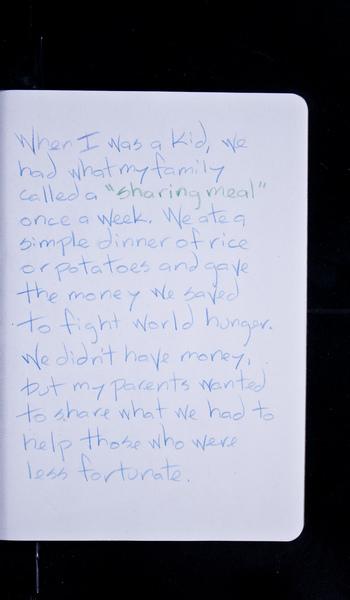 When I was a kid, we
had what my family
called a "sharing meal"
once a week. We ate a
simple dinner of rice
or potatoes and gave
the money we saved
to fight world hunger.
We didn't have money,
but my parents wanted
to share what we had to
help those who were
less fortunate.